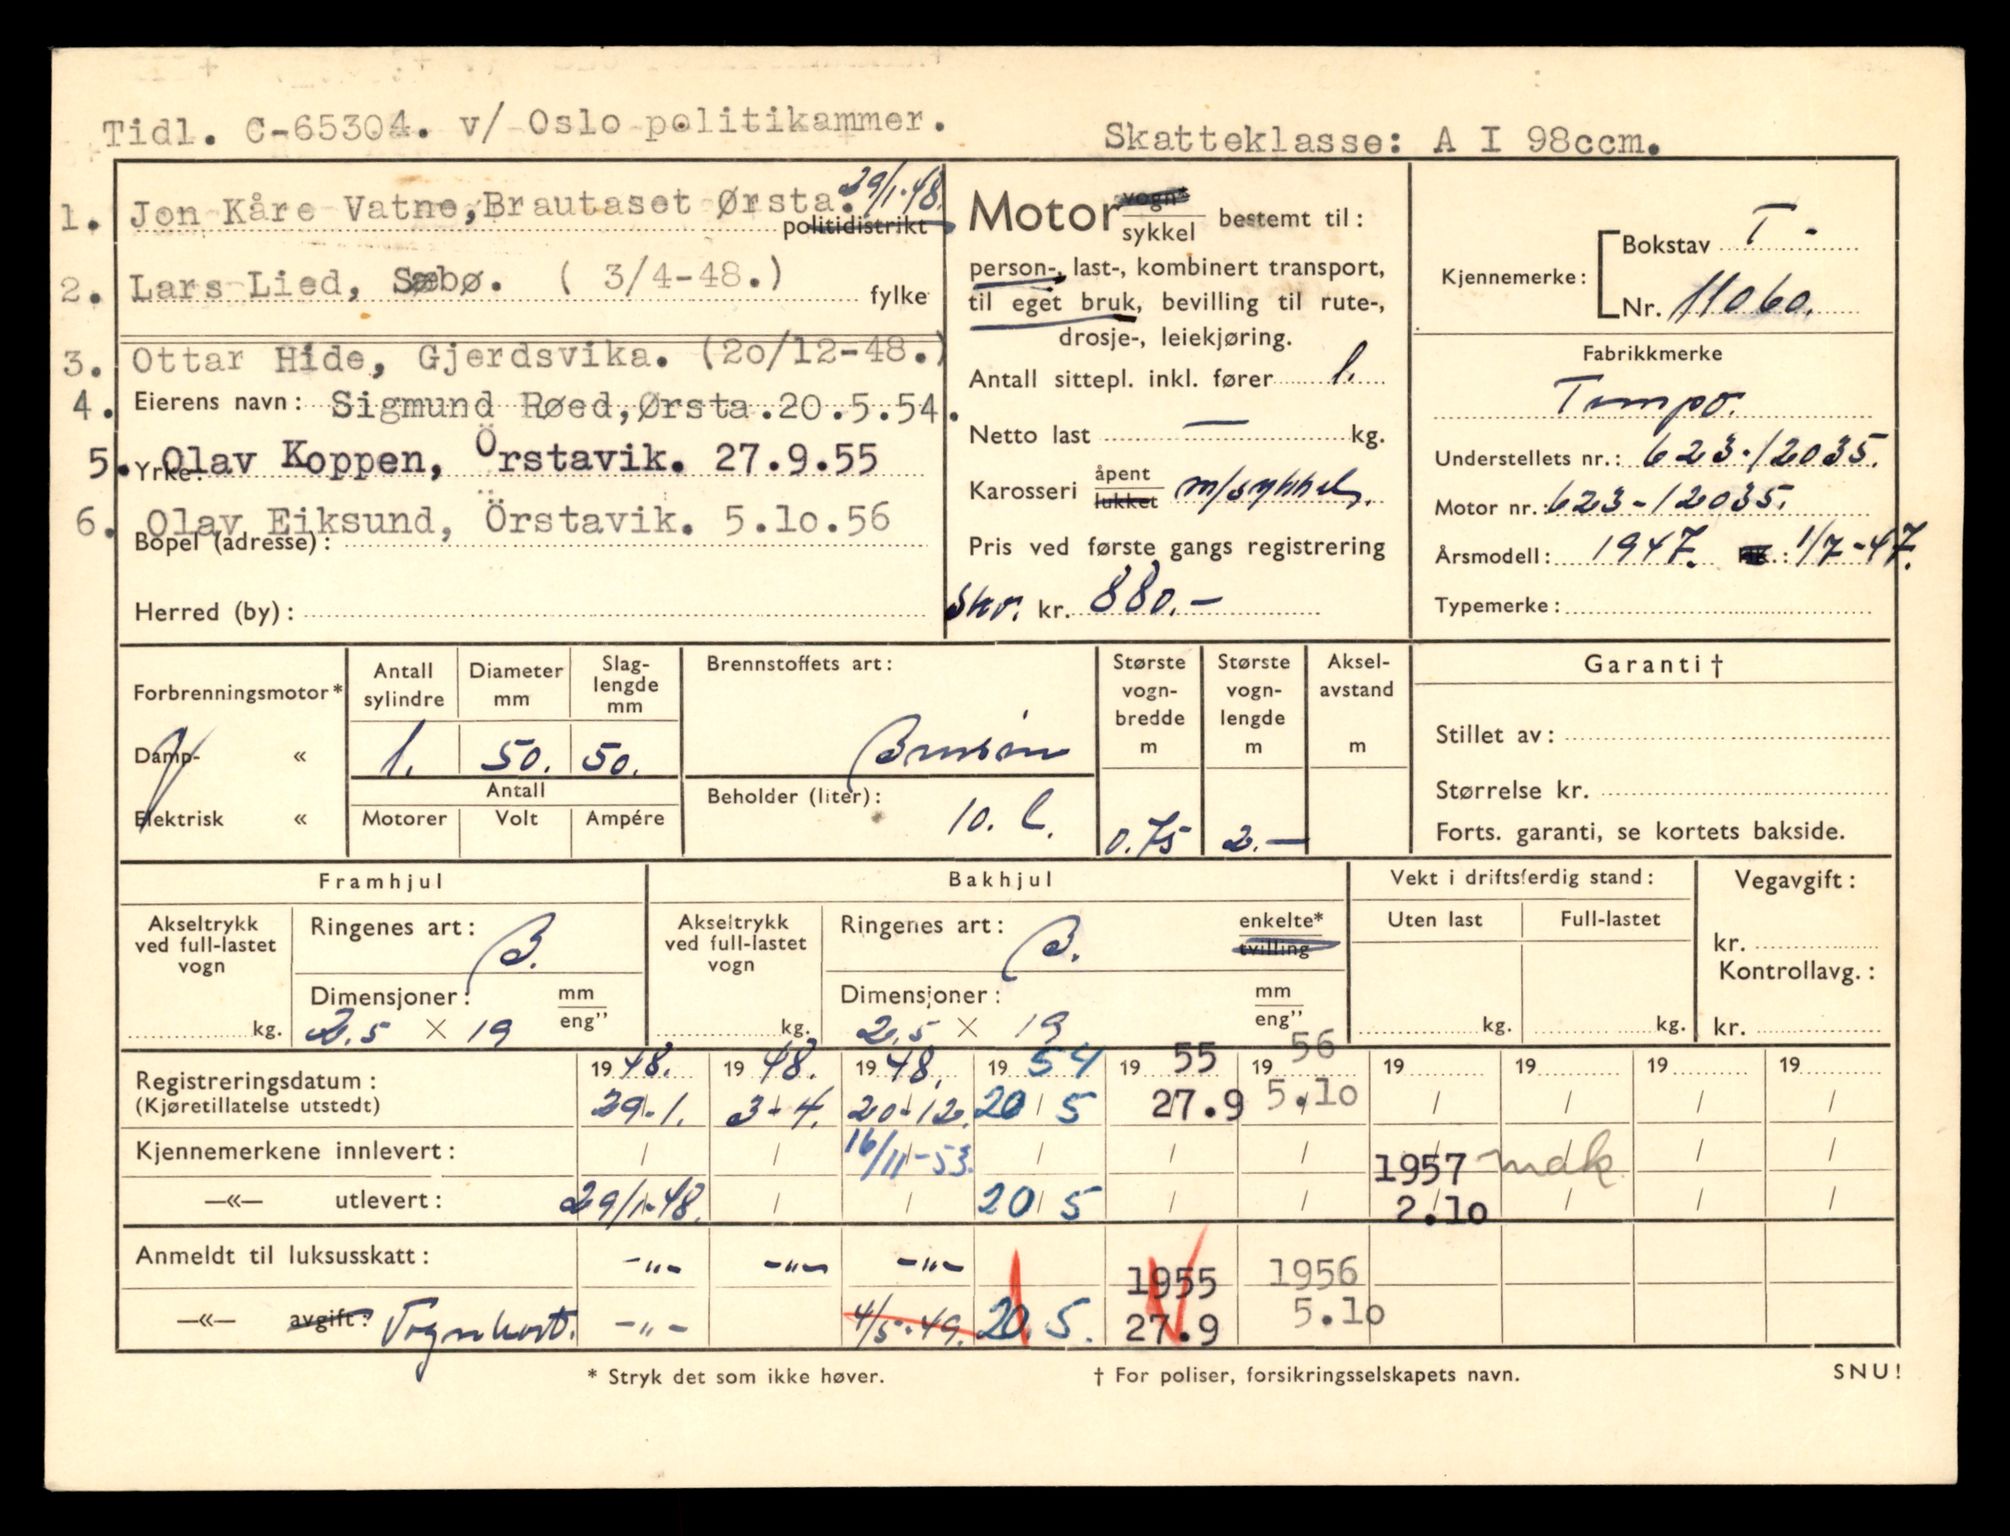 Tidl. C-65304. v/ Oslo politikammer.
Skatteklasse: A I 98ccm.
1. Jon Kåre Vatne, Brautaset Ørsta. 29/1-48.
politidistrikt
2. Lars Lied, Sæbø. ( 3/4-48.)
fylke
3. Ottar Hide, Gjerdsvika. (2o/12-48.)
4. Eierens navn: Sigmund Røed, Ørsta. 20.5.54.
5. Olav Koppen, Örstavik. 27.9.55
Yrke:
6. Olav Eiksund, Örstavik. 5.1o.56
Bopel (adresse):
Herred (by):
Motor vogn* sykkel bestemt til:
person-, last-, kombinert transport,
til eget bruk, bevilling til rute-,
drosje-, leiekjøring.
Antall sittepl. inkl. fører 1.
Netto last — kg.
Karosseri åpent lukket m/sykkel.
Pris ved første gangs registrering
Skr. kr. 880.-
Kjennemerke: Bokstav T-
Nr. 11060.
Fabrikkmerke
Tempo.
Understellets nr.: 623-12035.
Motor nr.: 623-12035.
Årsmodell: 1947. 1/7-47.
Typemerke:
Forbrenningsmotor*
Damp- «
Elektrisk «
Antall sylindre
1.
Diameter mm
50.
Slag-lengde mm
50.
Antall
Motorer Volt Ampére
Brennstoffets art:
Bensin
Beholder (liter):
10. l.
Største vogn-bredde m
0.75
Største vogn-lengde m
2.—
Aksel-avstand m
Garanti †
Stillet av:
Størrelse kr.
Forts. garanti, se kortets bakside.
Framhjul
Akseltrykk ved full-lastet vogn
kg.
Ringenes art: B.
Dimensjoner: mm eng”
2.5 × 19
Bakhjul
Akseltrykk ved full-lastet vogn
kg.
Ringenes art: B. enkelte* tvilling
Dimensjoner: mm eng”
2.5 × 19
Vekt i driftsferdig stand:
Uten last Full-lastet
kg. kg.
Vegavgift:
kr.
Kontrollavg.:
kr.
Registreringsdatum: 1948. 1948. 1948. 1954 19 55 19 56 19 19 19 19
(Kjøretillatelse utstedt) 29-1. 3-4. 20-12. 20/5 27.9 5.1o / / / /
Kjennemerkene innlevert: / / 16/11-53. / / / 1957 mak / /
—«— utlevert: 29/1-48. / / 20/5 / / 2.1o / / /
Anmeldt til luksusskatt: -"- -"- -"- 1955 1956
—«— avgift: Vognkort. -"- 4/5-49. 20.5. 27.9 5.1o
* Stryk det som ikke høver.
† For poliser, forsikringsselskapets navn.
SNU!